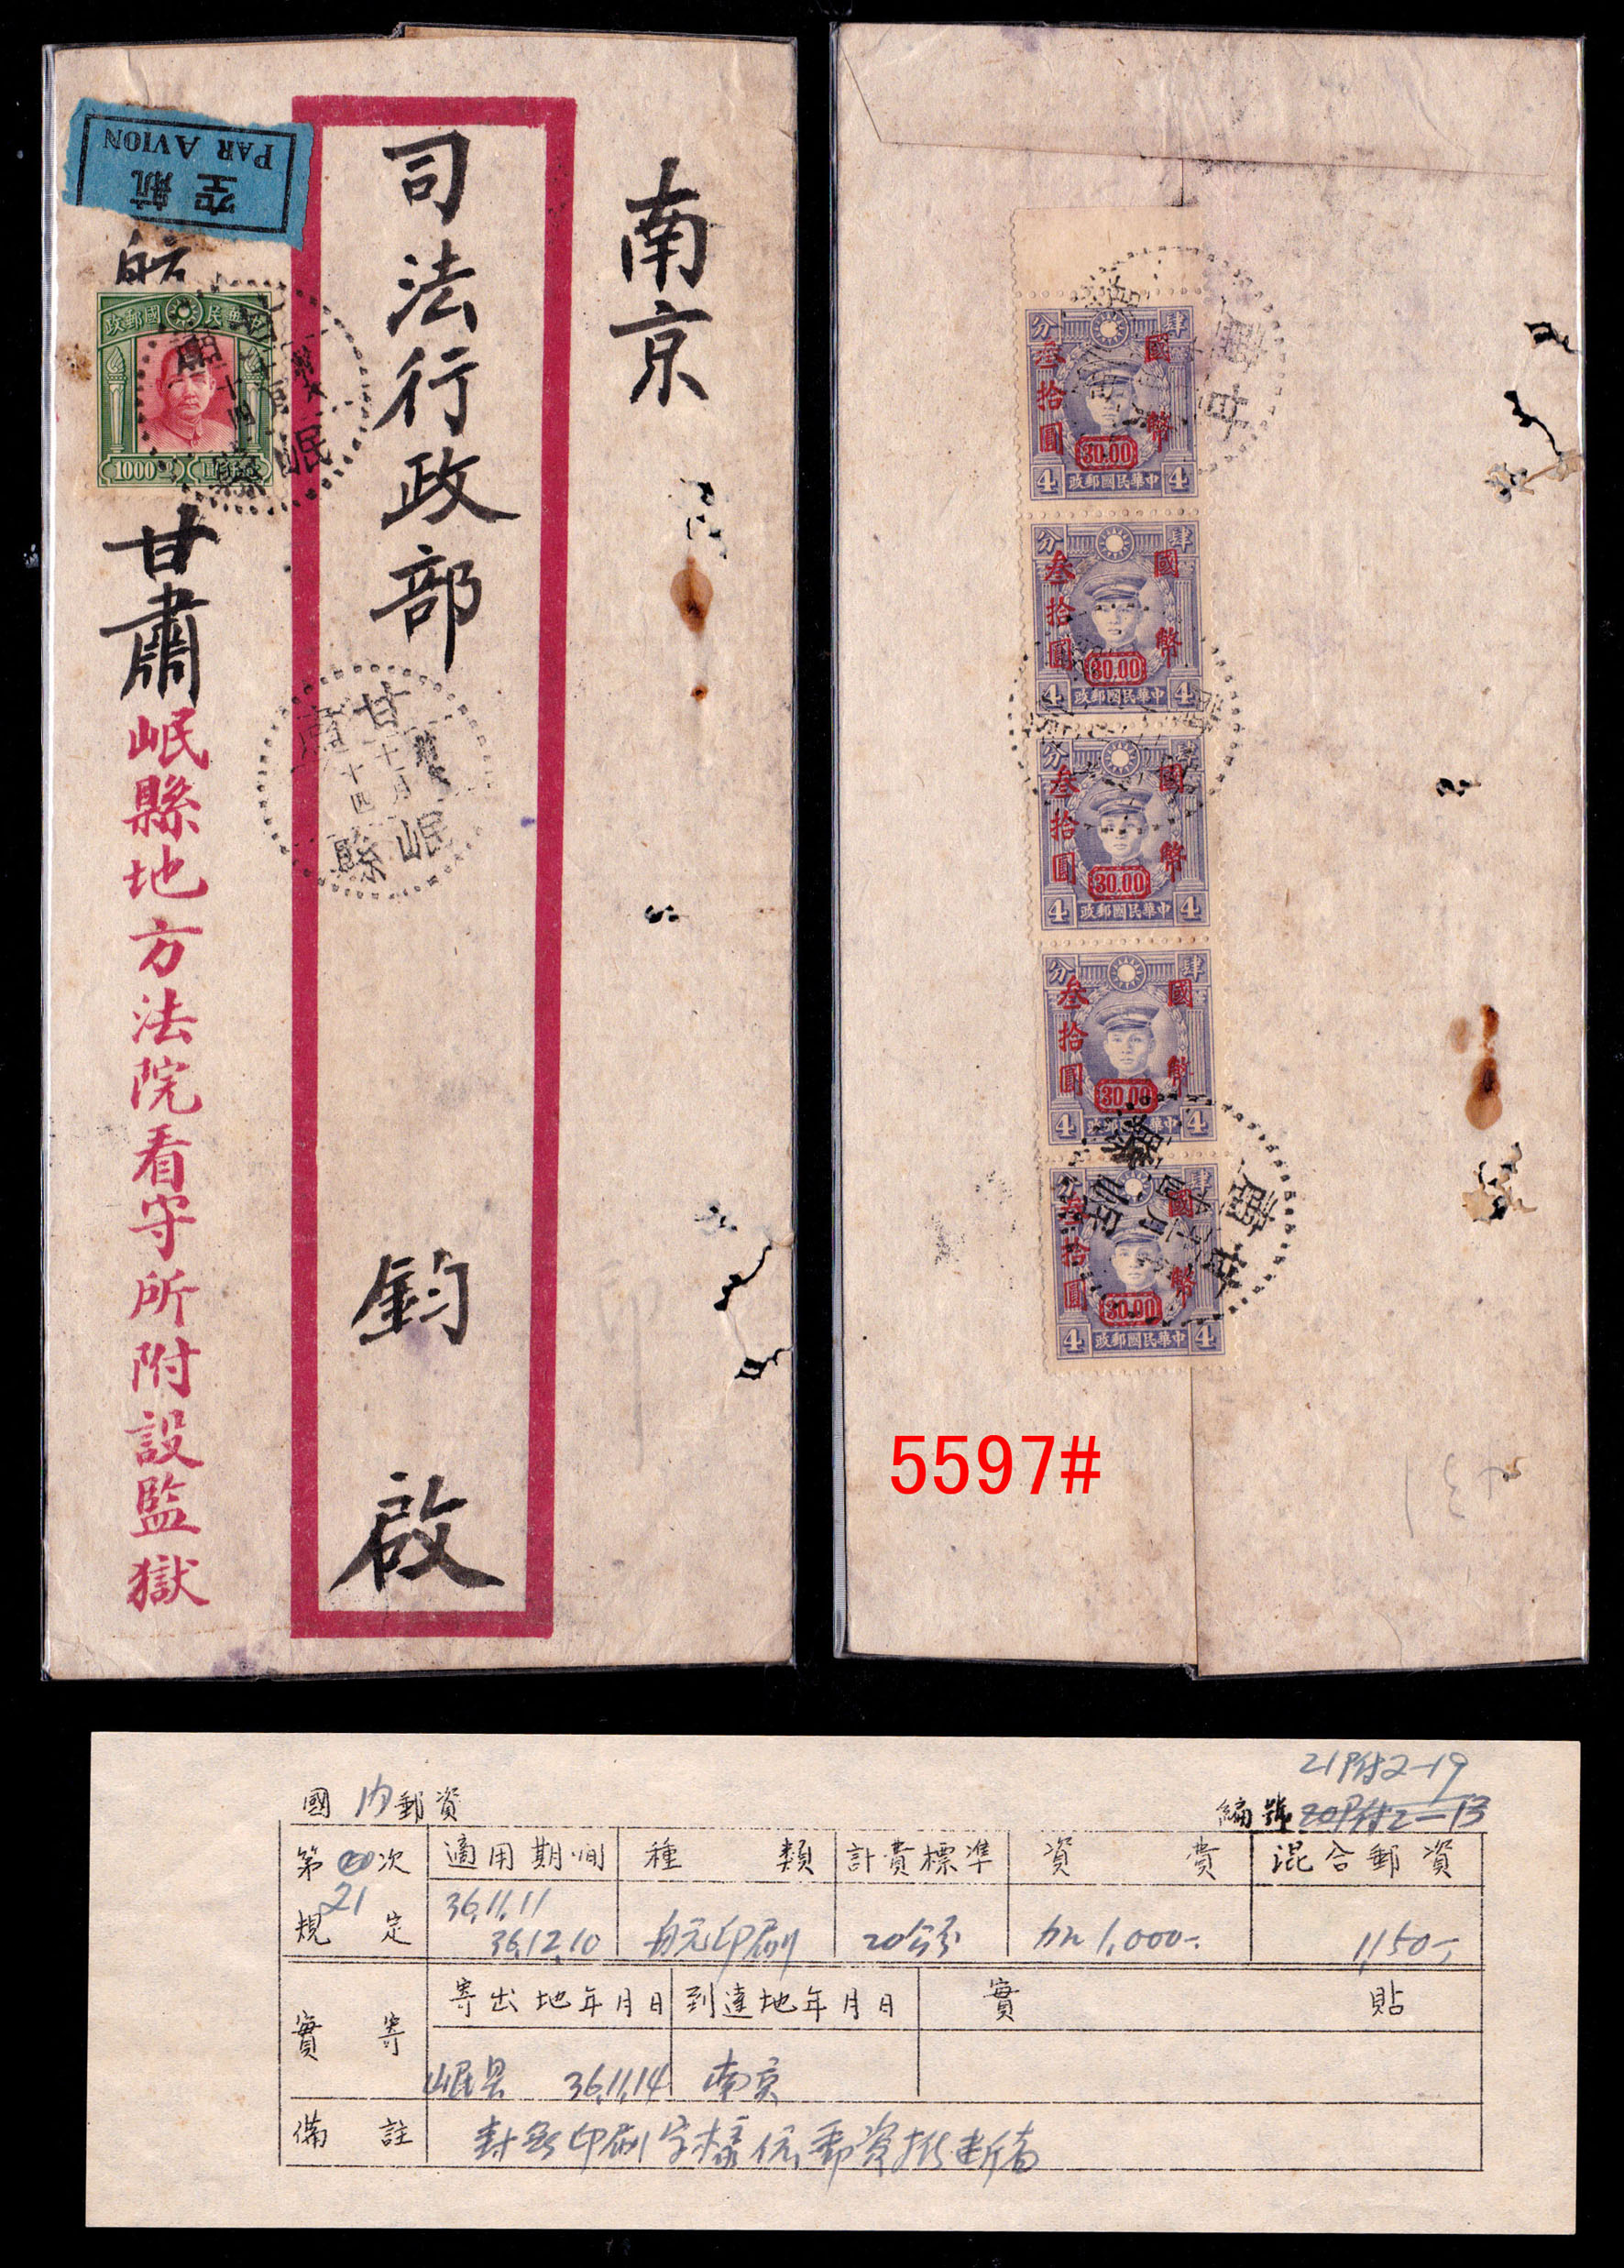 南京
司法行政部
鈞啟
甘肅岷縣地方法院看守所附設監獄
PAR AVION
空航
航
政郵國民華中
1000
甘肅
十一月
十四
岷縣
肆分
國幣
叁拾圓
30.00
4 政郵國民華中 4
肆分
國幣
叁拾圓
30.00
4 政郵國民華中 4
肆分
國幣
叁拾圓
30.00
4 政郵國民華中 4
肆分
國幣
叁拾圓
30.00
4 政郵國民華中 4
肆分
國幣
叁拾圓
30.00
4 政郵國民華中 4
甘肅
岷縣
5597#
國內郵資
21附2-19
編號 20附2-13
第 次 21 規定
適用期间
種類
計費標準
資費
混合郵資
36,11,11
36,12,10
航空印刷
20公分
加 1,000-
1,150-
實寄
寄出地年月日
到達地年月日
實貼
岷县 36,11,14
南京
備註
封無印刷字樣依郵資推断為